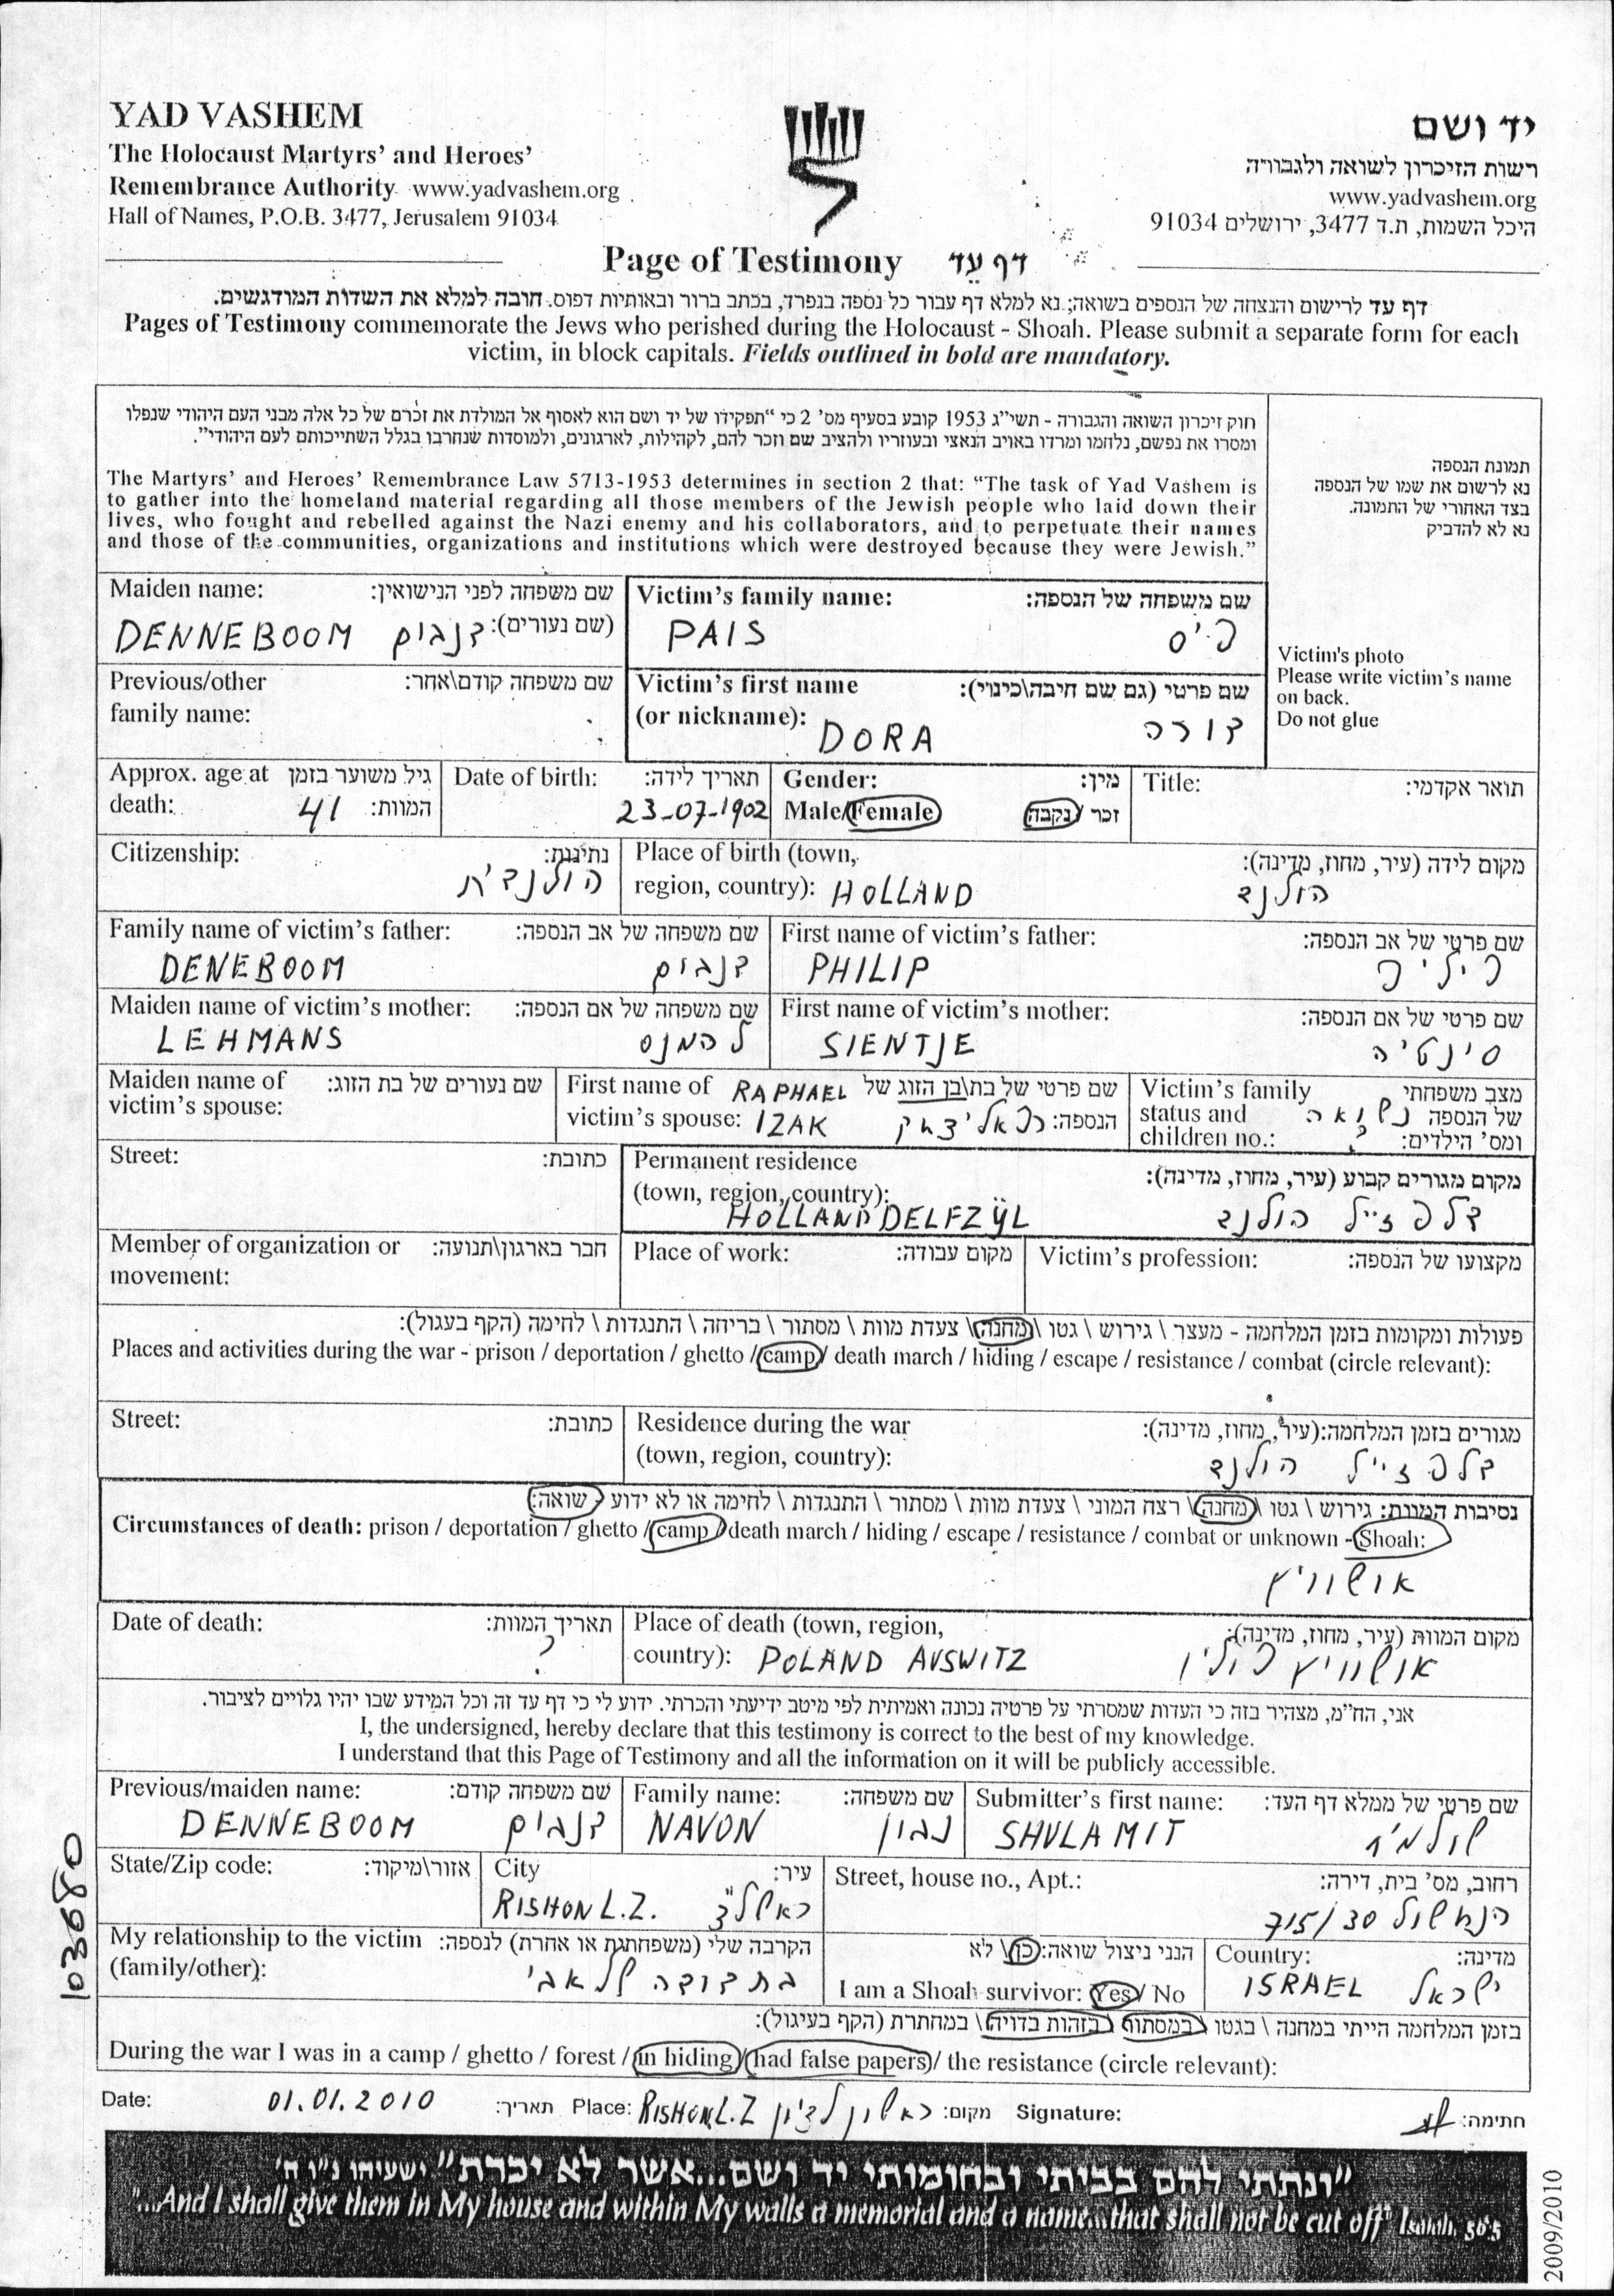 YAD VASHEM
The Holocaust Martyrs' and Heroes'
Remembrance Authority www.yadvashem.org
Hall of Names, P.O.B. 3477, Jerusalem 91034
יד ושם
רשות הזיכרון לשואה ולגבורה
www.yadvashem.org
היכל השמות, ת.ד 3477, ירושלים 91034
Page of Testimony דף עד
דף עד לרישום והנצחה של הנספים בשואה; נא למלא דף עבור כל נספה בנפרד, בכתב ברור ובאותיות דפוס. חובה למלא את השדות המודגשים.
Pages of Testimony commemorate the Jews who perished during the Holocaust - Shoah. Please submit a separate form for each
victim, in block capitals. Fields outlined in bold are mandatory.
חוק זיכרון השואה והגבורה - תשי"ג 1953 קובע בסעיף מס' 2 כי "תפקידו של יד ושם הוא לאסוף אל המולדת את זכרם של כל אלה מבני העם היהודי שנפלו
ומסרו את נפשם, נלחמו ומרדו באויב הנאצי ובעוזריו ולהציב שם וזכר להם, לקהילות, לארגונים, ולמוסדות שנחרבו בגלל השתייכותם לעם היהודי".
The Martyrs' and Heroes' Remembrance Law 5713-1953 determines in section 2 that: "The task of Yad Vashem is
to gather into the homeland material regarding all those members of the Jewish people who laid down their
lives, who fought and rebelled against the Nazi enemy and his collaborators, and to perpetuate their names
and those of the communities, organizations and institutions which were destroyed because they were Jewish."
תמונת הנספה
נא לרשום את שמו של הנספה
בצד האחורי של התמונה.
נא לא להדביק
Victim's photo
Please write victim's name
on back.
Do not glue
Maiden name: שם משפחה לפני הנישואין:
(שם נעורים):
DENNEBOOM דנבום
Victim's family name: שם משפחה של הנספה:
PAIS פיס
Previous/other שם משפחה קודם\אחר:
family name:
Victim's first name שם פרטי (גם שם חיבה\כינוי):
(or nickname): DORA דורה
Approx. age at גיל משוער בזמן
death: 41 המוות:
Date of birth: תאריך לידה:
23-07-1902
Gender: מין:
Male/Female זכר / נקבה
Title: תואר אקדמי:
Citizenship: נתינות:
הולנדית
Place of birth (town, מקום לידה (עיר, מחוז, מדינה):
region, country): HOLLAND הולנד
Family name of victim's father: שם משפחה של אב הנספה:
DENEBOOM דנבום
First name of victim's father: שם פרטי של אב הנספה:
PHILIP פיליפ
Maiden name of victim's mother: שם משפחה של אם הנספה:
LEHMANS להמנס
First name of victim's mother: שם פרטי של אם הנספה:
SIENTJE סינטיה
Maiden name of שם נעורים של בת הזוג:
victim's spouse:
First name of RAPHAEL שם פרטי של בת\בן הזוג של
victim's spouse: IZAK רפאל יצחק הנספה:
Victim's family מצב משפחתי
status and נשואה של הנספה
children no.: ? ומס' הילדים:
Street: כתובת:
Permanent residence מקום מגורים קבוע (עיר, מחוז, מדינה):
(town, region, country):
HOLLAND DELFZŸL דלפזייל הולנד
Member of organization or חבר בארגון\תנועה:
movement:
Place of work: מקום עבודה:
Victim's profession: מקצועו של הנספה:
פעולות ומקומות בזמן המלחמה - מעצר \ גירוש \ גטו \ מחנה \ צעדת מוות \ מסתור \ בריחה \ התנגדות \ לחימה (הקף בעגול):
Places and activities during the war - prison / deportation / ghetto / camp / death march / hiding / escape / resistance / combat (circle relevant):
Street: כתובת:
Residence during the war מגורים בזמן המלחמה:(עיר, מחוז, מדינה):
(town, region, country): דלפזייל הולנד
נסיבות המוות: גירוש \ גטו \ מחנה \ רצח המוני \ צעדת מוות \ מסתור \ התנגדות \ לחימה או לא ידוע - שואה:
Circumstances of death: prison / deportation / ghetto / camp / death march / hiding / escape / resistance / combat or unknown - Shoah:
אושוויץ
Date of death: תאריך המוות:
?
Place of death (town, region, מקום המוות (עיר, מחוז, מדינה):
country): POLAND AUSWITZ אושוויץ פולין
אני, הח"מ, מצהיר בזה כי העדות שמסרתי על פרטיה נכונה ואמיתית לפי מיטב ידיעתי והכרתי. ידוע לי כי דף עד זה וכל המידע שבו יהיו גלויים לציבור.
I, the undersigned, hereby declare that this testimony is correct to the best of my knowledge.
I understand that this Page of Testimony and all the information on it will be publicly accessible.
Previous/maiden name: שם משפחה קודם:
DENNEBOOM דנבום
Family name: שם משפחה:
NAVON נבון
Submitter's first name: שם פרטי של ממלא דף העד:
SHULAMIT שולמית
State/Zip code: אזור\מיקוד:
City עיר:
RISHON L.Z. ראשל"צ
Street, house no., Apt.: רחוב, מס' בית, דירה:
הנחשול 30/715
My relationship to the victim הקרבה שלי (משפחתית או אחרת) לנספה:
(family/other): בת דודה של אבי
הנני ניצול שואה: כן \ לא
I am a Shoah survivor: Yes / No
Country: מדינה:
ISRAEL ישראל
בזמן המלחמה הייתי במחנה \ בגטו \ במסתור \ בזהות בדויה \ במחתרת (הקף בעיגול):
During the war I was in a camp / ghetto / forest / in hiding / had false papers / the resistance (circle relevant):
Date: 01.01.2010 תאריך: Place: RISHON L.Z ראשון לציון מקום: Signature: חתימה:
"ונתתי להם בביתי ובחומותי יד ושם...אשר לא יכרת" ישעיהו נ"ו ה'
"...And I shall give them in My house and within My walls a memorial and a name...that shall not be cut off" Isaiah. 56:5
103680
2009/2010